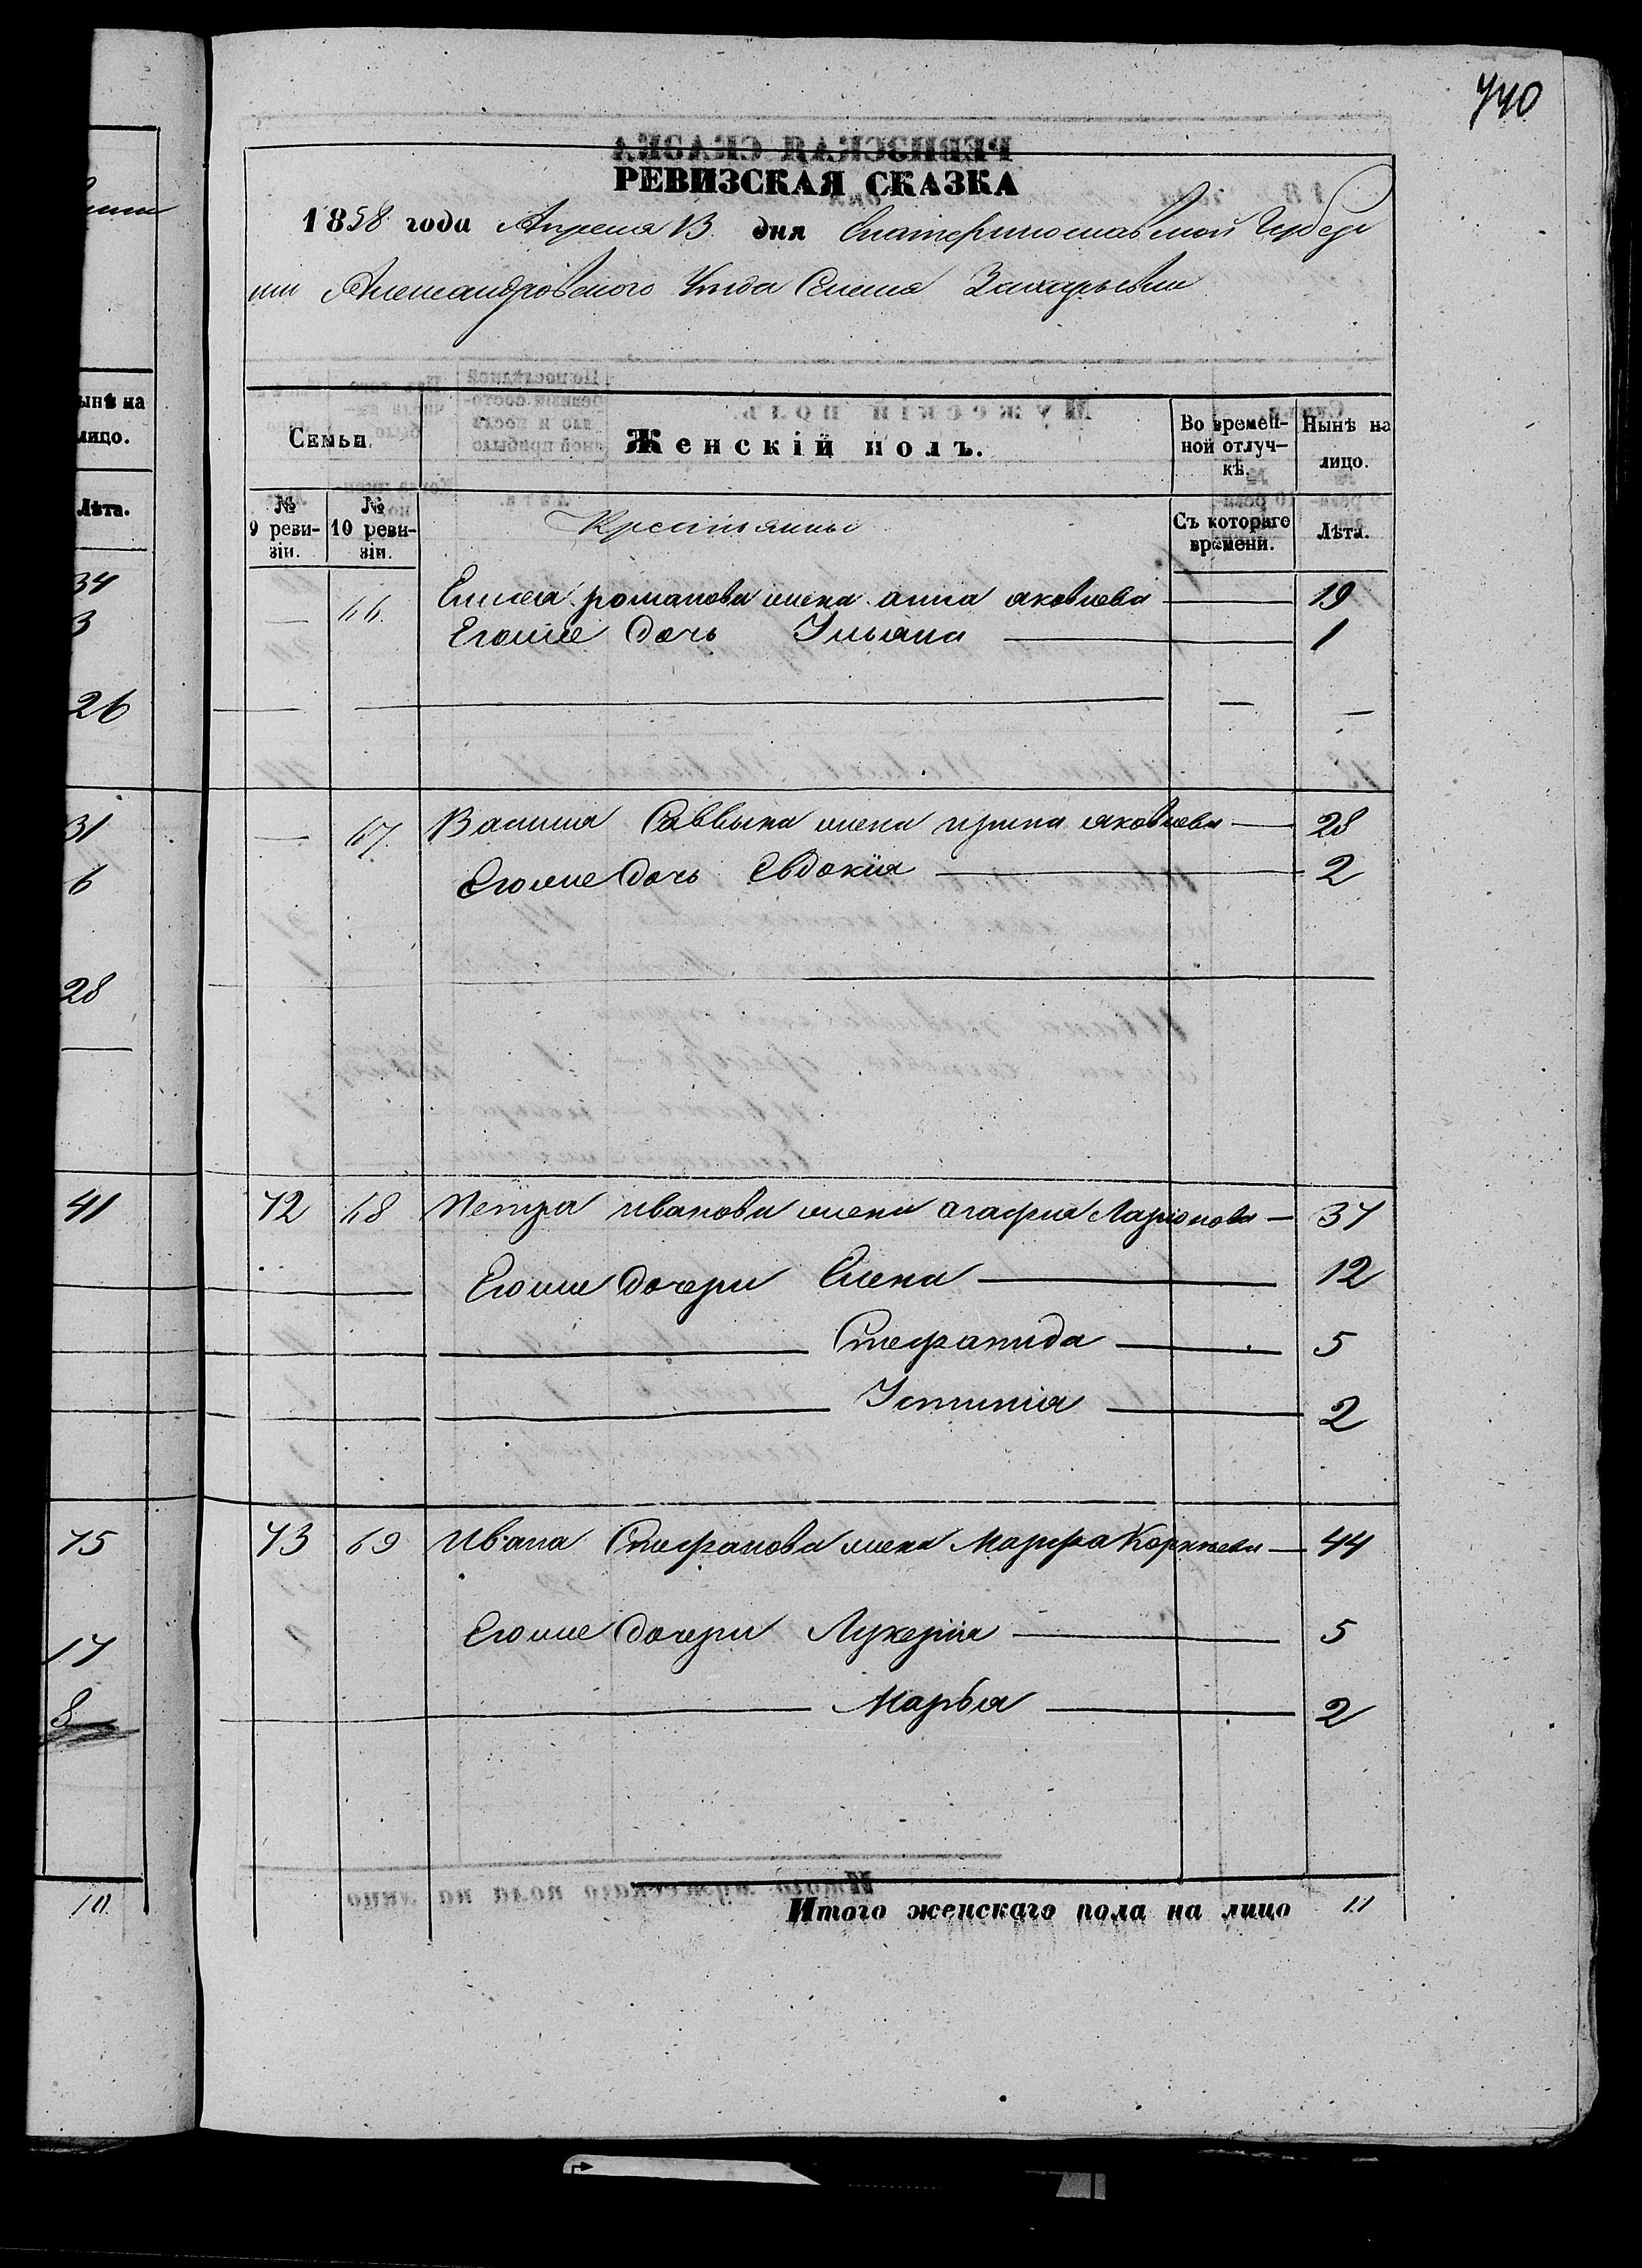 740
РЕВИЗСКАЯ СКАЗКА
1858 года Апреля 13 дня Екатеринославской Губер
нии Александровского Уезда Селения Захарьевки
ынѣ на
лицо.
Лѣта.
34
3
26
31
6
28
41
75
17
8
10
Семьи.
Женскій полъ.
Во времен-
ной отлуч-
кѣ.
Нынѣ на
лицо.
№
9 реви-
зіи.
№
10 реви-
зіи.
Крестьянны
Съ котораго
времени.
Лѣта.
— 66. Елисея романова жена анна яковлева — 19
Егоже дочь Ульяна — 1
— 67. Василия Саввына жена ирина яковлева — 28
Егоже дочь Евдокия — 2
72 68 Петра иванова жена агафия Ларионова — 37
Егоже дочери Елена — 12
— Стефанида — 5
— Устиния — 2
73 69 Ивана Стефанова жена Марфа Корнеева — 44
Егоже дочери Лукерия — 5
— Марья — 2
Итого женскаго пола на лицо 11